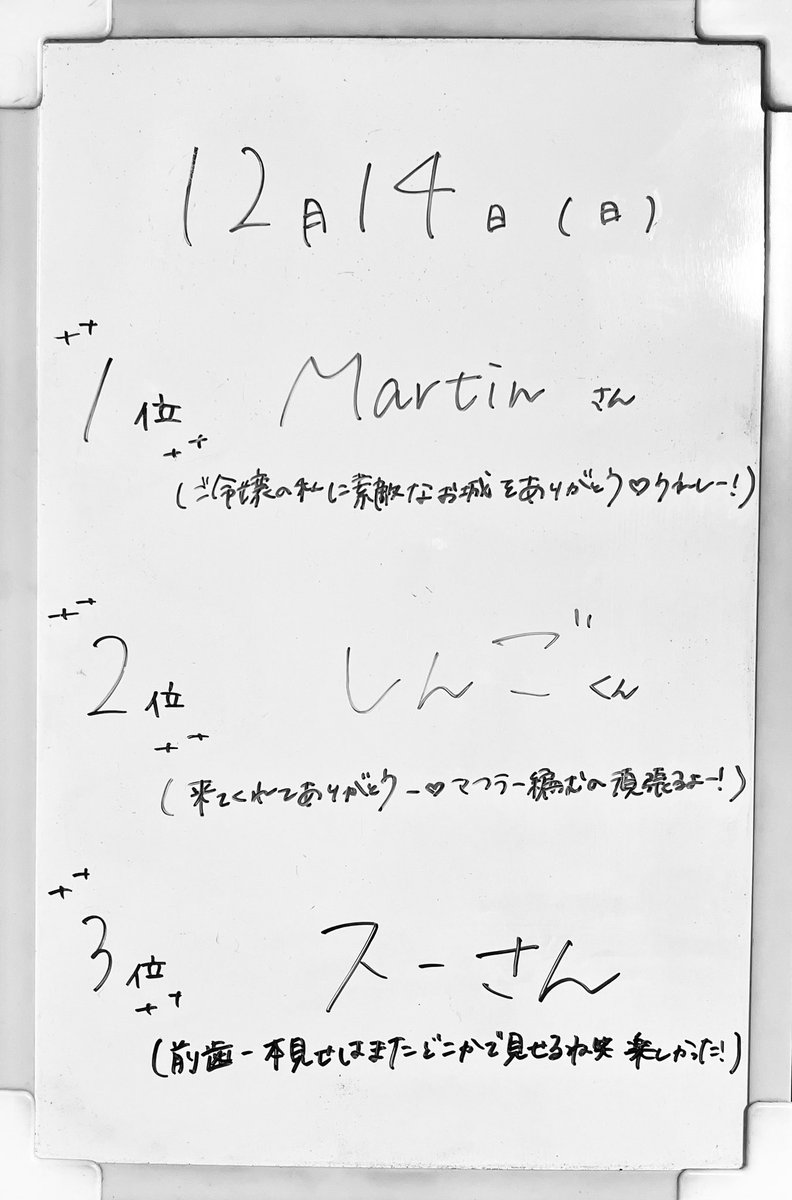 12月14日(日)
1位 Martin さん
(ご令嬢の私に素敵なお城をありがとう♡うれしー!)
2位 しんごくん
(来てくれてありがとうー♡マフラー編むの頑張るよー!)
3位 スーさん
(前歯一本見せはまたどこかで見せるね笑 楽しかった!)